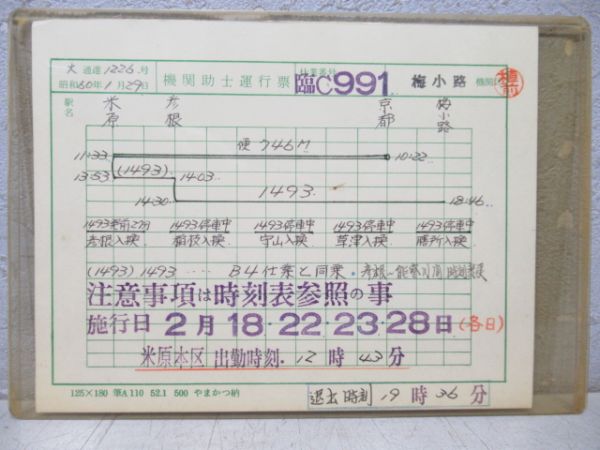 大 通達 1226 号
昭和 60 年 1 月 29 日
機関助士運行票
仕業番号
臨C991
梅小路 機関区
駅名 米原 彦根 京都 梅小路
便 746M
11:33 10:22
(1493)
13:53 14:03
1493
14:30 18:46
1493発前27分 1493停車中 1493停車中 1493停車中 1493停車中
彦根入換 稲枝入換 守山入換 草津入換 膳所入換
(1493) 1493 ‥‥ B4仕業と同乗・彦根~能登川間 時刻変更
注意事項は時刻表参照の事
施行日 2月 18・22・23・28日 (各日)
米原本区 出勤時刻・12 時 43 分
125×180 筆A110 52.1 500 やまかつ納
退出時刻 19 時 36 分